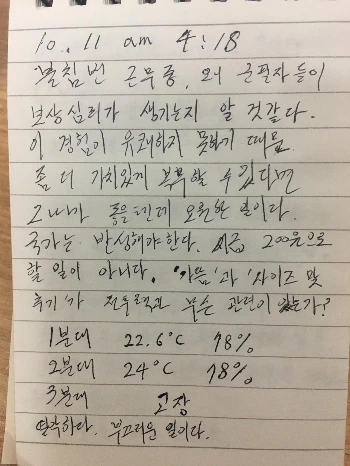 10. 11 am 4:18
불침번 근무중, 왜 군필자들이
보상심리가 생기는지 알 것 같다.
이 경험이 유쾌하지 못하기 때문.
좀 더 가치있게 복무할 수 있다면
그나마 좋을텐데 요원한 일이다.
국가는 반성해야한다. 시급 200원으로
할 일이 아니다. '가뭄'과 '사이즈 맞
추기'가 전투력과 무슨 관련이 있는가?
1분대 22.6°C 78%
2분대 24°C 78%
3분대 고장
딱하다. 부끄러운 일이다.